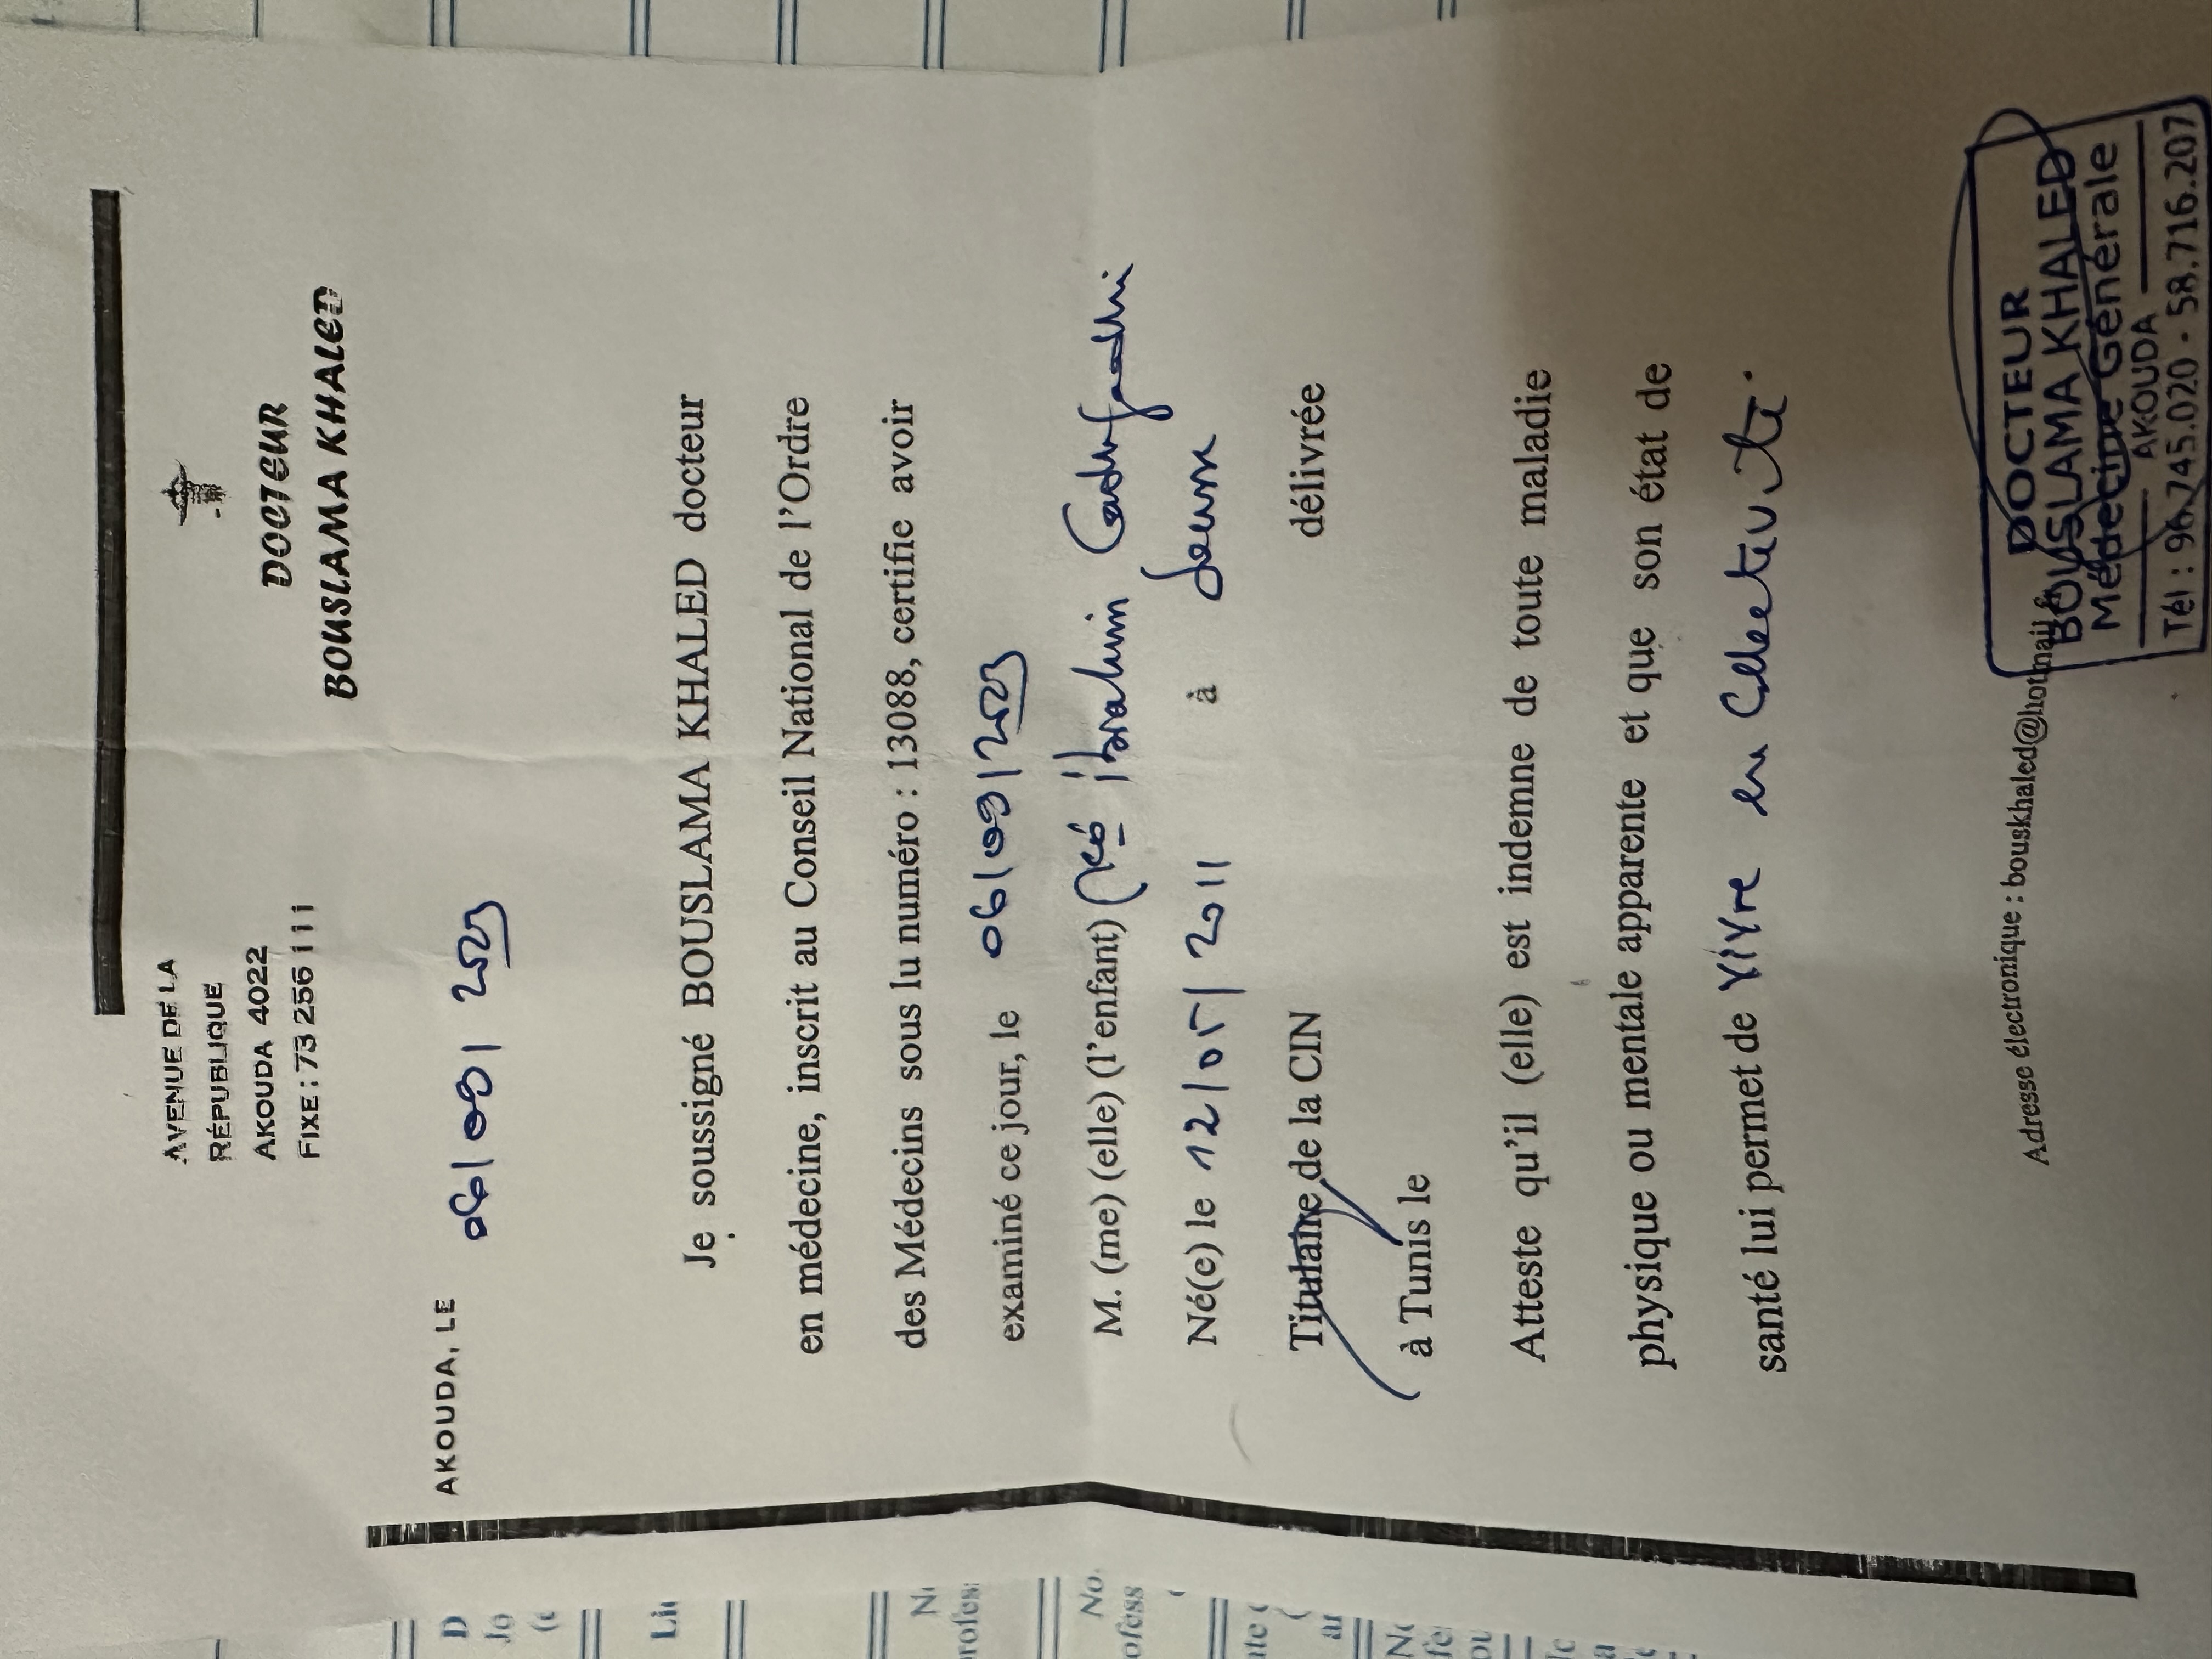 AVENUE DE LA
RÉPUBLIQUE
AKOUDA 4022
FIXE : 73 256 111
DOCTEUR
BOUSLAMA KHALED
AKOUDA, LE
06/09/2023
Je soussigné BOUSLAMA KHALED docteur
en médecine, inscrit au Conseil National de l'Ordre
des Médecins sous lu numéro : 13088, certifie avoir
examiné ce jour, le 06/09/2023
M. (me) (elle) (l'enfant) Ibrahim
Né(e) le 12/05/2011 à
Titulaire de la CIN délivrée
à Tunis le
Atteste qu'il (elle) est indemne de toute maladie
physique ou mentale apparente et que son état de
santé lui permet de vivre en collectivité.
Adresse électronique : bouskhaled@hotmail.
DOCTEUR
BOUSLAMA KHALED
Médecine Générale
AKOUDA
Tél : 96.745.020 - 58.716.207